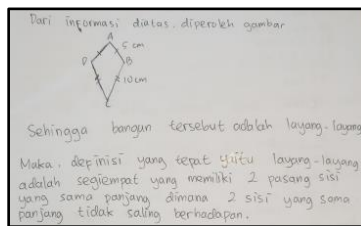 Dari informasi diatas, diperoleh gambar
A
5 cm
D
B
10cm
C
Sehingga bangun tersebut adalah layang-layang
Maka, definisi yang tepat yaitu layang-layang
adalah segiempat yang memiliki 2 pasang sisi
yang sama panjang dimana 2 sisi yang sama
panjang tidak saling berhadapan.